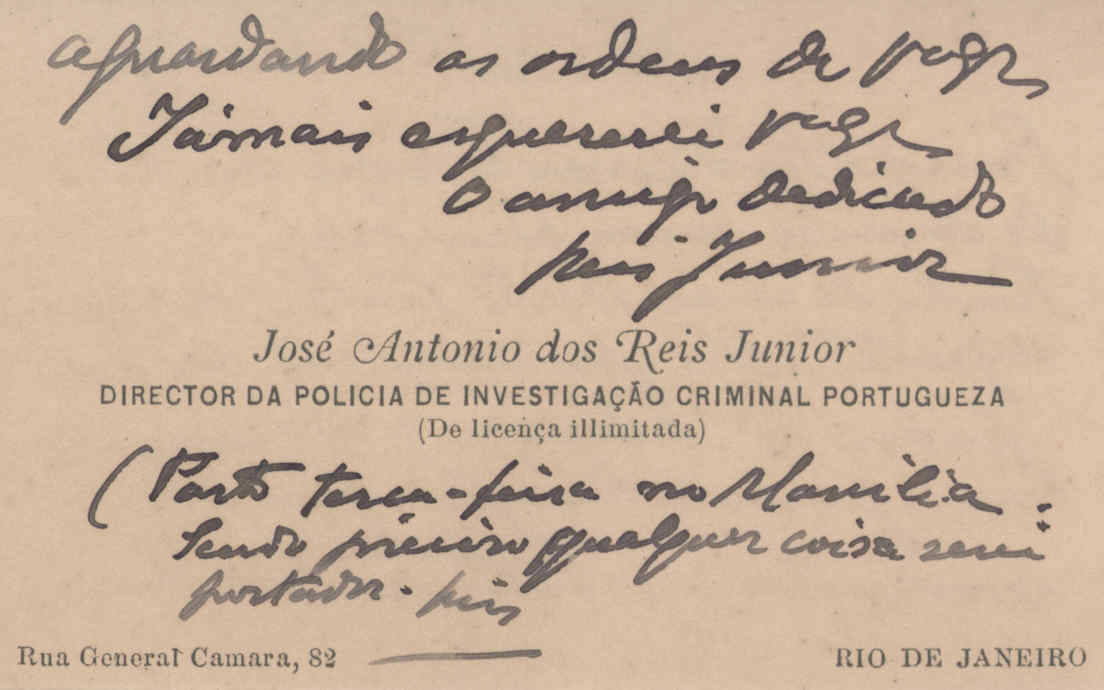 aguardando as ordens de
Jámais esquecerei
O amigo dedicado
Reis Junior
José Antonio dos Reis Junior
DIRECTOR DA POLICIA DE INVESTIGAÇÃO CRIMINAL PORTUGUEZA
(De licença illimitada)
(Parto terça-feira no Manilia.
Sendo preciso qualquer coisa serei
portador. Reis
Rua General Camara, 82
RIO DE JANEIRO